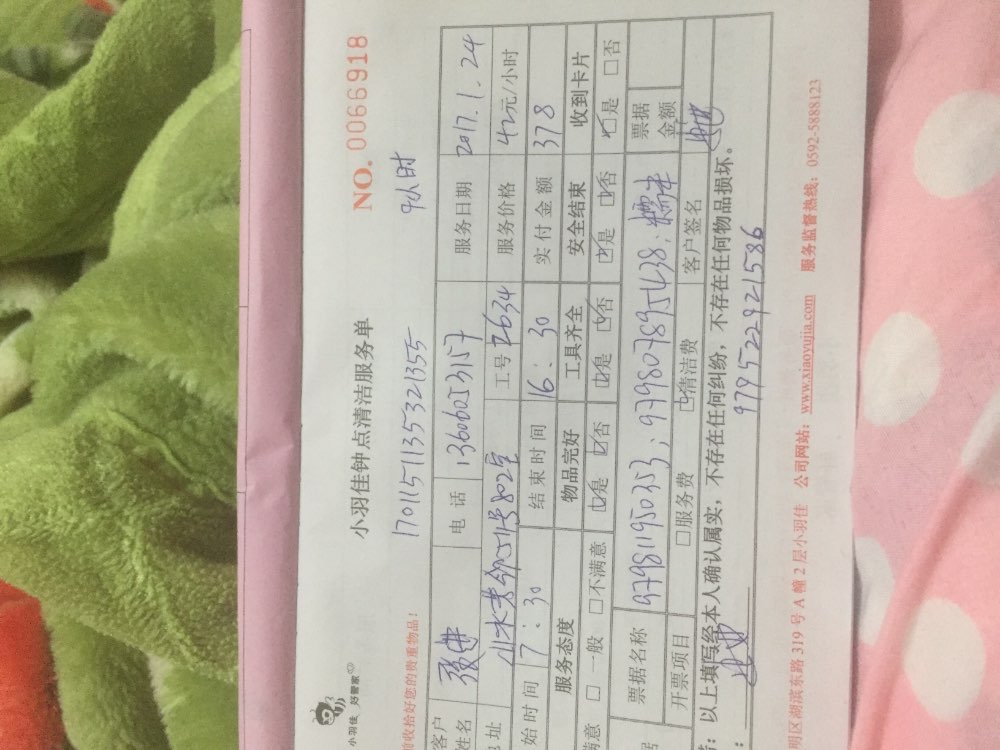 小羽佳 好管家
小羽佳钟点清洁服务单
NO. 0066918
170115113535321355
9小时
前收拾好您的贵重物品!
客户姓名 电话 服务日期 2017.1.24
地址 511号802室 工号 2634 服务价格 42元/小时
始时间 7:30 结束时间 16:30 实付金额 378
服务态度 物品完好 工具齐全 安全结束 收到卡片
满意 □一般 □不满意 ☑是 □否 ☑是 □否 ☑是 □否 ☑是 □否
票据名称 979811950353; 979807895438; 糯米 票据金额
开票项目 □服务费 □清洁费 客户签名
:以上填写经本人确认属实,不存在任何纠纷,不存在任何物品损坏。
9795229921586
明区湖滨东路 319 号 A 幢 2 层小羽佳 公司网站:www.xiaoyujia.com 服务监督热线:0592-5888123